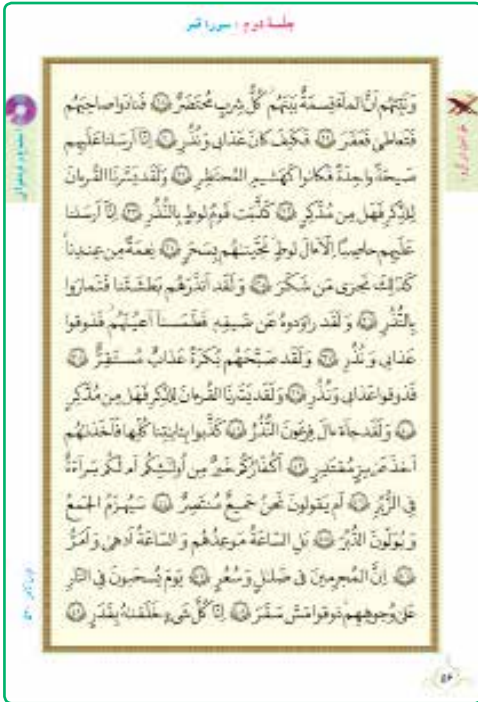 جلسهٔ دوم : سورهٔ قمر
وَنَبِّئهُم اَنَّ الماۤءَ قِسمَةٌ بَينَهُم كُلُّ شِربٍ مُحتَضَرٌ ﴿٢٨﴾ فَنادَوا صاحِبَهُم
فَتَعاطىٰ فَعَقَرَ ﴿٢٩﴾ فَكَيفَ كانَ عَذابى وَنُذُرِ ﴿٣٠﴾ اِنّاۤ اَرسَلنا عَلَيهِم
صَيحَةً واحِدَةً فَكانوا كَهَشيمِ المُحتَظِرِ ﴿٣١﴾ وَلَقَد يَسَّرنَا القُرءانَ
لِلذِّكرِ فَهَل مِن مُدَّكِرٍ ﴿٣٢﴾ كَذَّبَت قَومُ لوطٍ بِالنُّذُرِ ﴿٣٣﴾ اِنّاۤ اَرسَلنا
عَلَيهِم حاصِبًا اِلّاۤ ءالَ لوطٍ نَجَّينٰهُم بِسَحَرٍ ﴿٣٤﴾ نِعمَةً مِن عِندِنا
كَذٰلِكَ نَجزى مَن شَكَرَ ﴿٣٥﴾ وَلَقَد اَنذَرَهُم بَطشَتَنا فَتَمارَوا
بِالنُّذُرِ ﴿٣٦﴾ وَلَقَد راوَدوهُ عَن ضَيفِهٖ فَطَمَسناۤ اَعيُنَهُم فَذوقوا
عَذابى وَنُذُرِ ﴿٣٧﴾ وَلَقَد صَبَّحَهُم بُكرَةً عَذابٌ مُستَقِرٌّ ﴿٣٨﴾
فَذوقوا عَذابى وَنُذُرِ ﴿٣٩﴾ وَلَقَد يَسَّرنَا القُرءانَ لِلذِّكرِ فَهَل مِن مُدَّكِرٍ
﴿٤٠﴾ وَلَقَد جاۤءَ ءالَ فِرعَونَ النُّذُرُ ﴿٤١﴾ كَذَّبوا بِـٔايٰتِنا كُلِّها فَاَخَذنٰهُم
اَخذَ عَزيزٍ مُقتَدِرٍ ﴿٤٢﴾ اَكُفّارُكُم خَيرٌ مِن اُولٰۤئِكُم اَم لَكُم بَراۤءَةٌ
فِى الزُّبُرِ ﴿٤٣﴾ اَم يَقولونَ نَحنُ جَميعٌ مُنتَصِرٌ ﴿٤٤﴾ سَيُهزَمُ الجَمعُ
وَيُوَلّونَ الدُّبُرَ ﴿٤٥﴾ بَلِ السّاعَةُ مَوعِدُهُم وَالسّاعَةُ اَدهىٰ وَاَمَرُّ
﴿٤٦﴾ اِنَّ المُجرِمينَ فى ضَلٰلٍ وَسُعُرٍ ﴿٤٧﴾ يَومَ يُسحَبونَ فِى النّارِ
عَلىٰ وُجوهِهِم ذوقوا مَسَّ سَقَرَ ﴿٤٨﴾ اِنّا كُلَّ شَىءٍ خَلَقنٰهُ بِقَدَرٍ ﴿٤٩﴾
۵۶